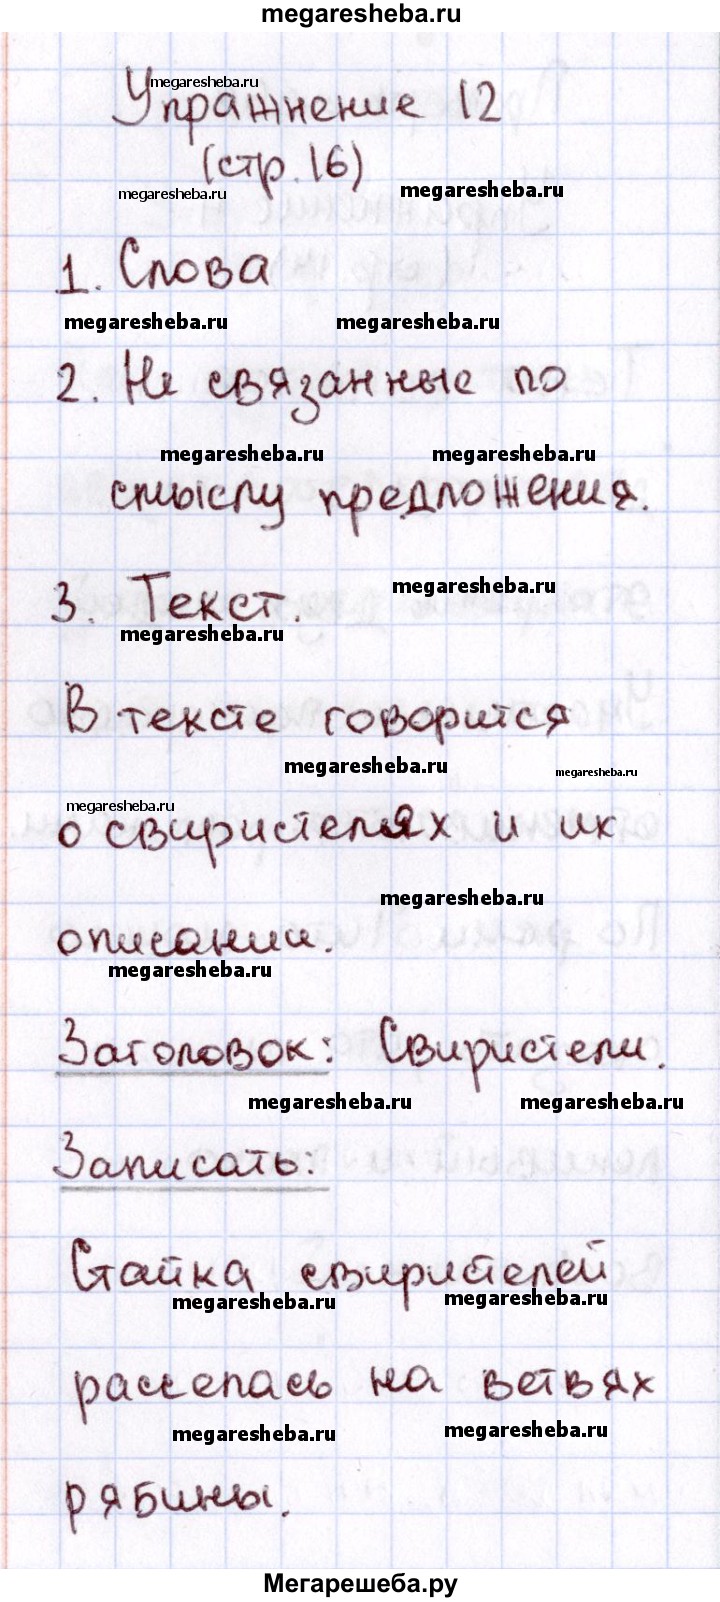 megaresheba.ru
Упражнение 12
megaresheba.ru
(стр. 16)
megaresheba.ru megaresheba.ru
1. Слова
megaresheba.ru megaresheba.ru
2. Не связанные по
megaresheba.ru megaresheba.ru
смыслу предложения.
3. Текст.
megaresheba.ru
megaresheba.ru
В тексте говорится
megaresheba.ru megaresheba.ru
megaresheba.ru
о свиристелях и их
megaresheba.ru
описании.
megaresheba.ru
Заголовок: Свиристели.
megaresheba.ru megaresheba.ru
Записать:
Стайка свиристелей
megaresheba.ru megaresheba.ru
расселась на ветвях
megaresheba.ru megaresheba.ru
рябины.
Мегарешеба.ру